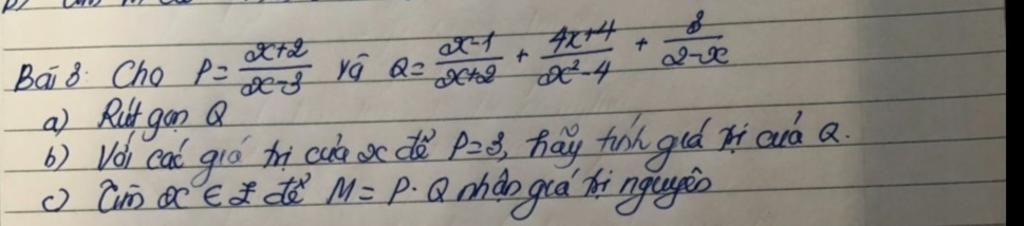 Bài 3: Cho P = \frac{x+2}{x-3} và Q = \frac{x-1}{x+2} + \frac{4x+4}{x^2-4} + \frac{3}{2-x}
a) Rút gọn Q
b) Với các giá trị của x để P=3, hãy tính giá trị của Q.
c) Tìm x ∈ Z để M = P . Q nhận giá trị nguyên